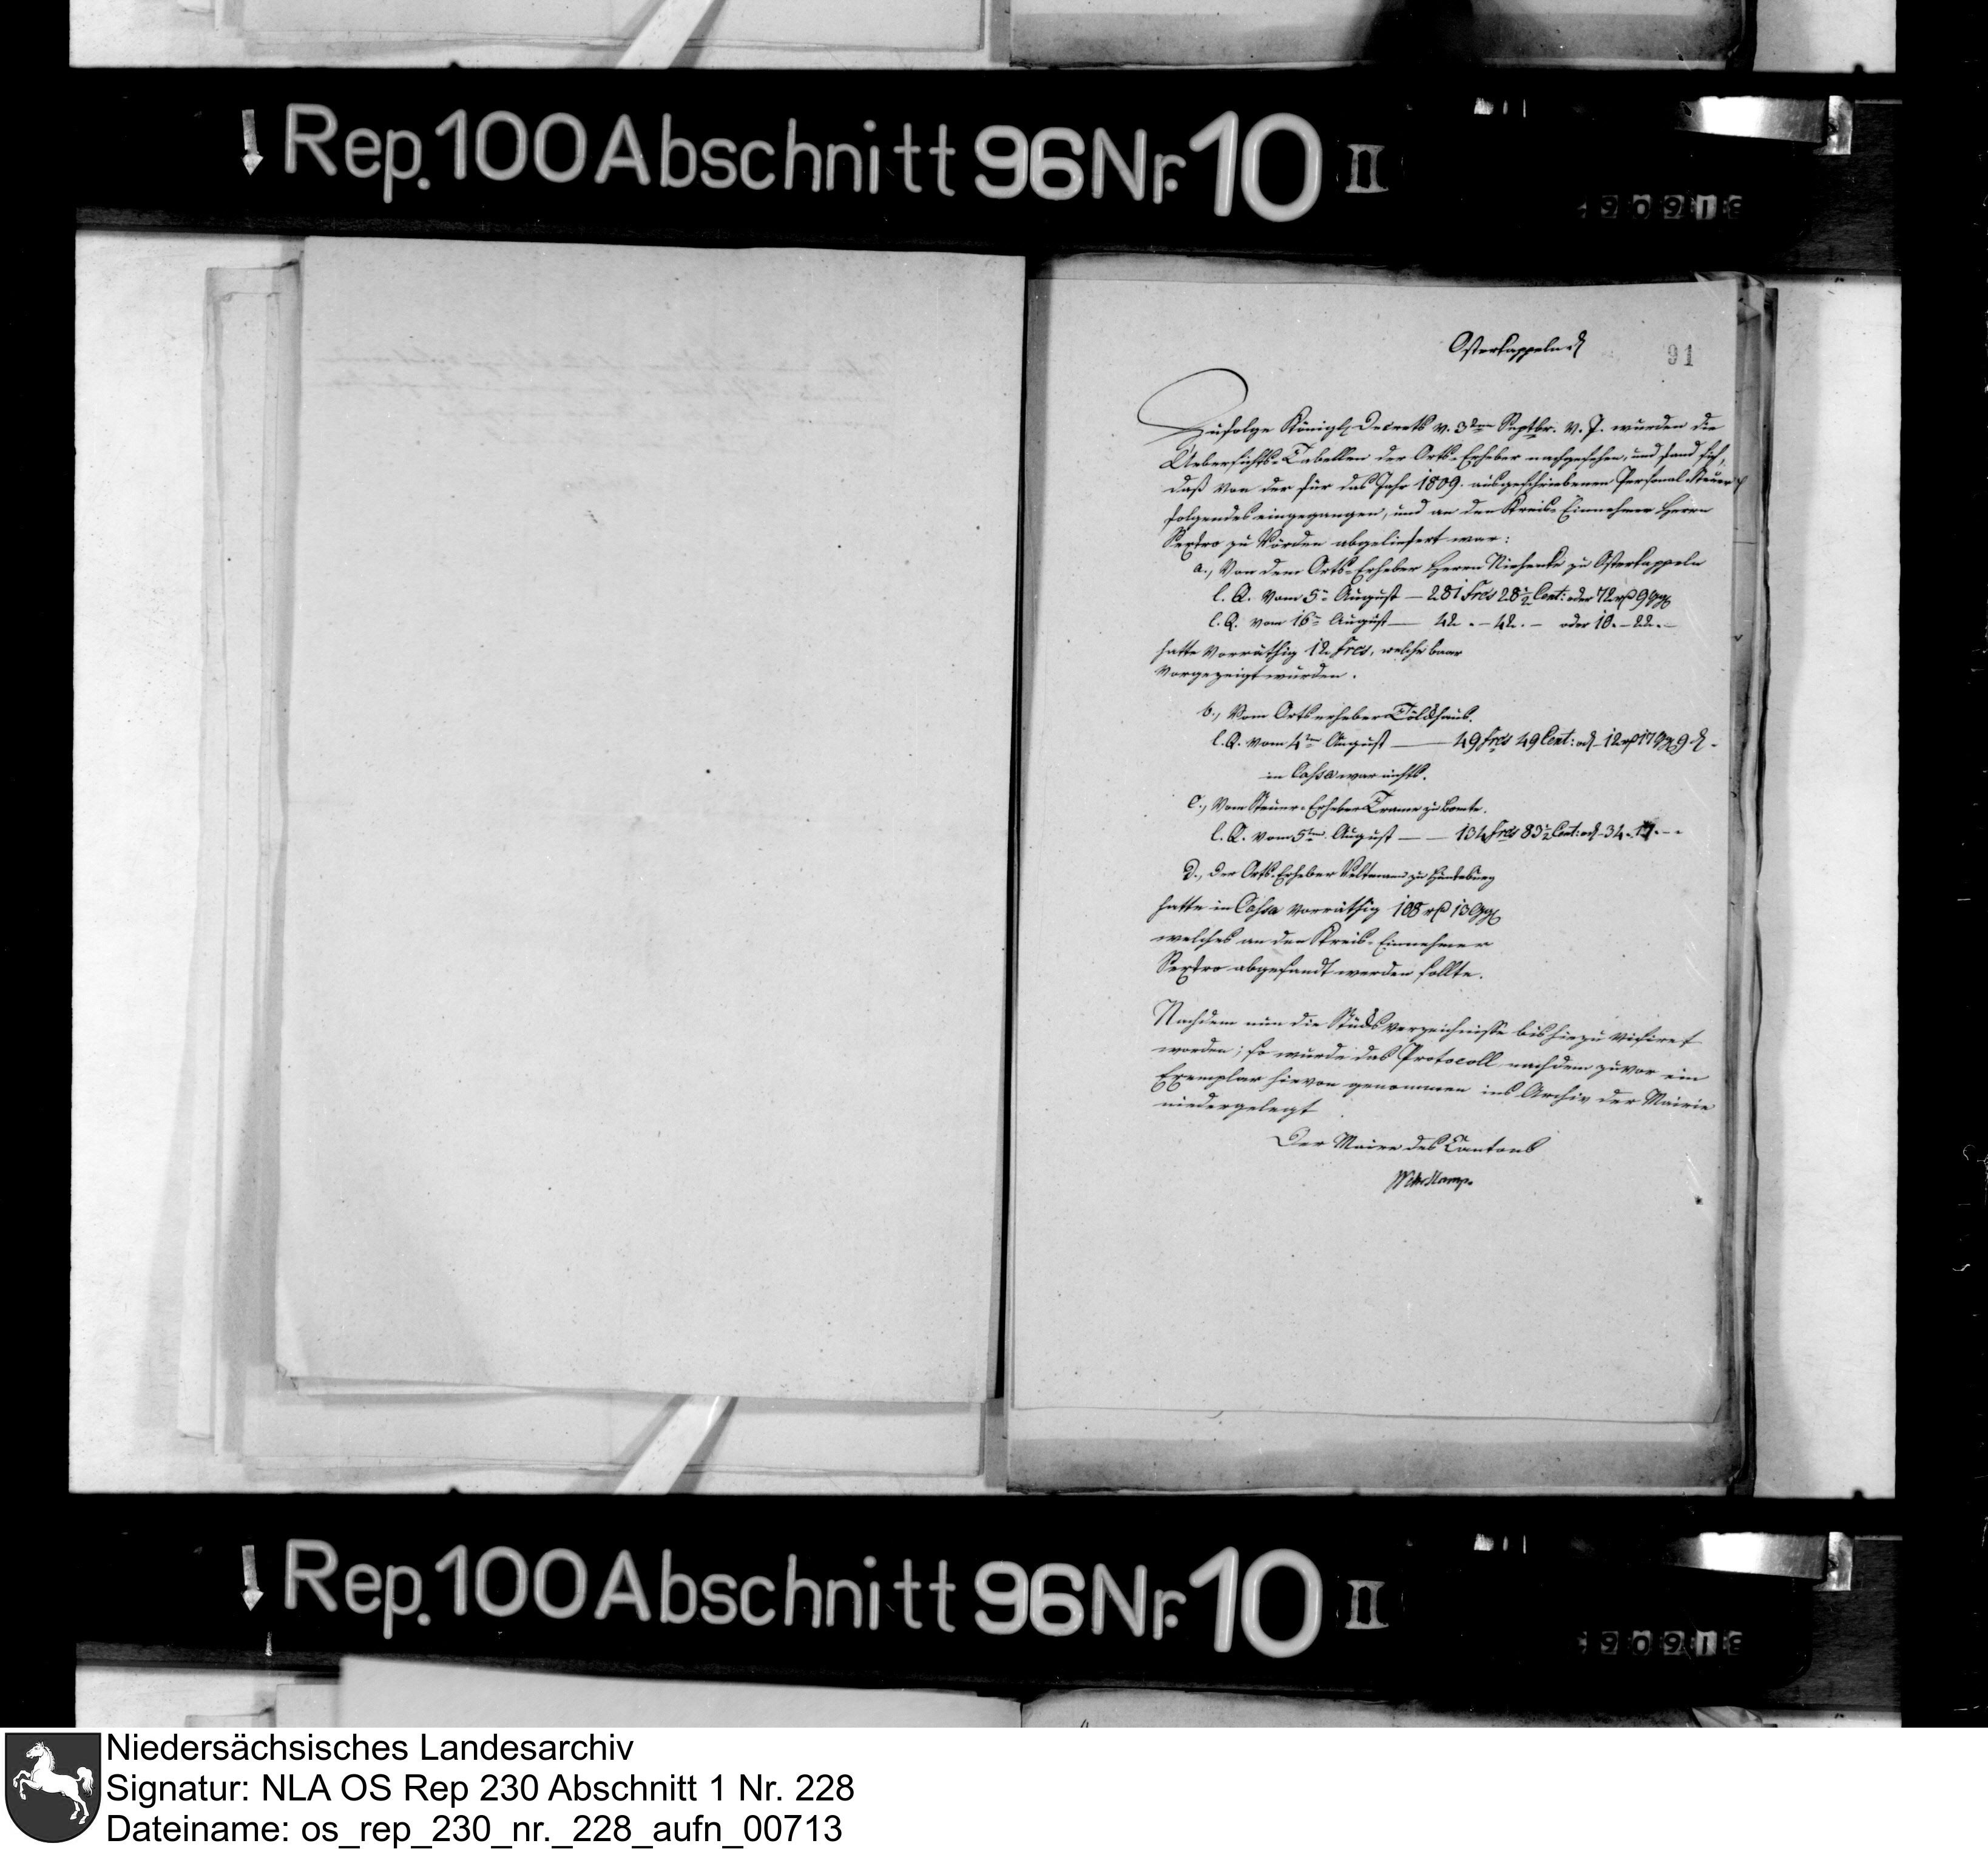 Rep. 100 Abschnitt 96 Nr. 10 II
Osterkappeln d
91
Zufolge Königl. Decrets v. 3ten Septbr. v. J. wurden die
Uebersichts-Tabellen der Orts-Erheber nachgesehen, und fand sich,
daß von der für das Jahr 1809. ausgeschriebenen Personal-Steuer
folgendes eingegangen, und an den Kreis-Einnehmer Herrn
Sextro zu Vörden abgeliefert war:
a., Von dem Orts-Erheber Herrn Niehenke zu Osterkappeln
l. Q. vom 5n August — 281 Frcs 28½ Cent: oder 72 rß 9 ggl
l. Q. vom 16n August — 42 . — 42 . — oder 10. — 22. —
hatte vorräthig 12 Frcs, welche baar
vorgezeigt wurden.
b., Vom Ortserheber Töldhaus.
l. Q. vom 4ten August — 49 Frcs 49 Cent: od 12 rß 17 ggl 9 d.
in Cassa war nichts.
c., Vom Steuer-Erheber Trame zu Bomte.
l. Q. vom 5ten August — 134 Frcs 83½ Cent: od 34. 17. —
d., der Orts-Erheber Veltmann zu Hunteburg
hatte in Cassa vorräthig 108 rß 13 ggl
welches an den Kreis-Einnehmer
Sextro abgesandt werden sollte.
Nachdem nun die Stücksverzeichnisse bis hiezu visiret
worden; so wurde das Protocoll nachdem zuvor ein
Exemplar hievon genommen ins Archiv der Mairie
niedergelegt
Der Maire des Cantons
Wehrkamp.
Rep. 100 Abschnitt 96 Nr. 10 II
Niedersächsisches Landesarchiv
Signatur: NLA OS Rep 230 Abschnitt 1 Nr. 228
Dateiname: os_rep_230_nr._228_aufn_00713